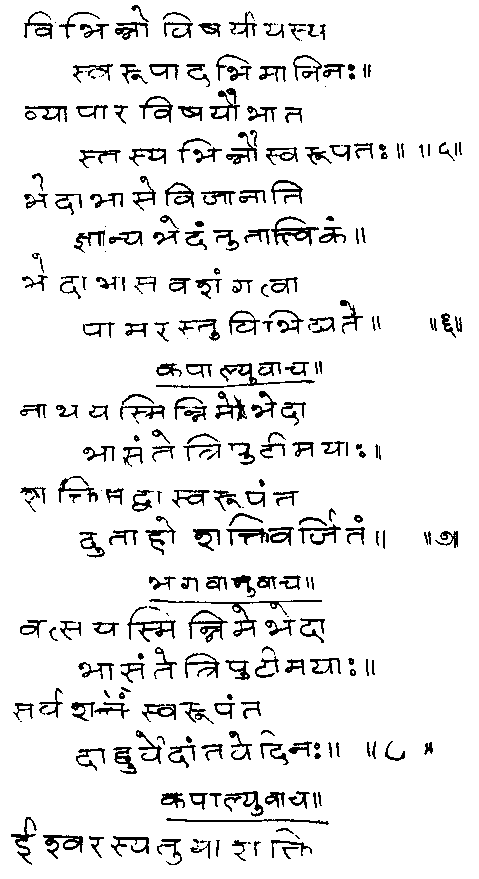 विभिन्नो विषयीयस्य
स्वरूपादभिमानिनः॥
व्यापारविषयौभात
स्तस्यभिन्नौस्वरूपतः॥ ॥५॥
भेदाभासेविजानाति
ज्ञान्यभेदंतुतात्त्विकं॥
भेदाभासवशंगत्वा
पामरस्तुविभिद्यते॥ ॥६॥
कपाल्युवाच॥
नाथयस्मिन्निमेभेदा
भासंतेत्रिपुटीमयाः॥
शक्तिमद्वास्वरूपंत
दुताहोशक्तिवर्जितं॥ ॥७॥
भगवानुवाच॥
वत्सयस्मिन्निमेभेदा
भासंतेत्रिपुटीमयाः॥
सर्वशक्तं स्वरूपंत
दाहुर्वेदांतवेदिनः॥ ॥८॥
कपाल्युवाच॥
ईश्वरस्यतुयाशक्ति